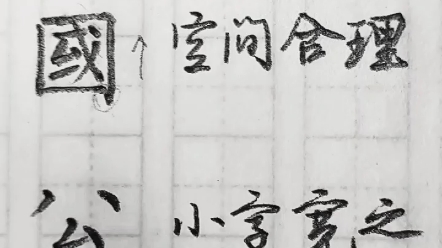 國↑空间合理
公 小字寬之